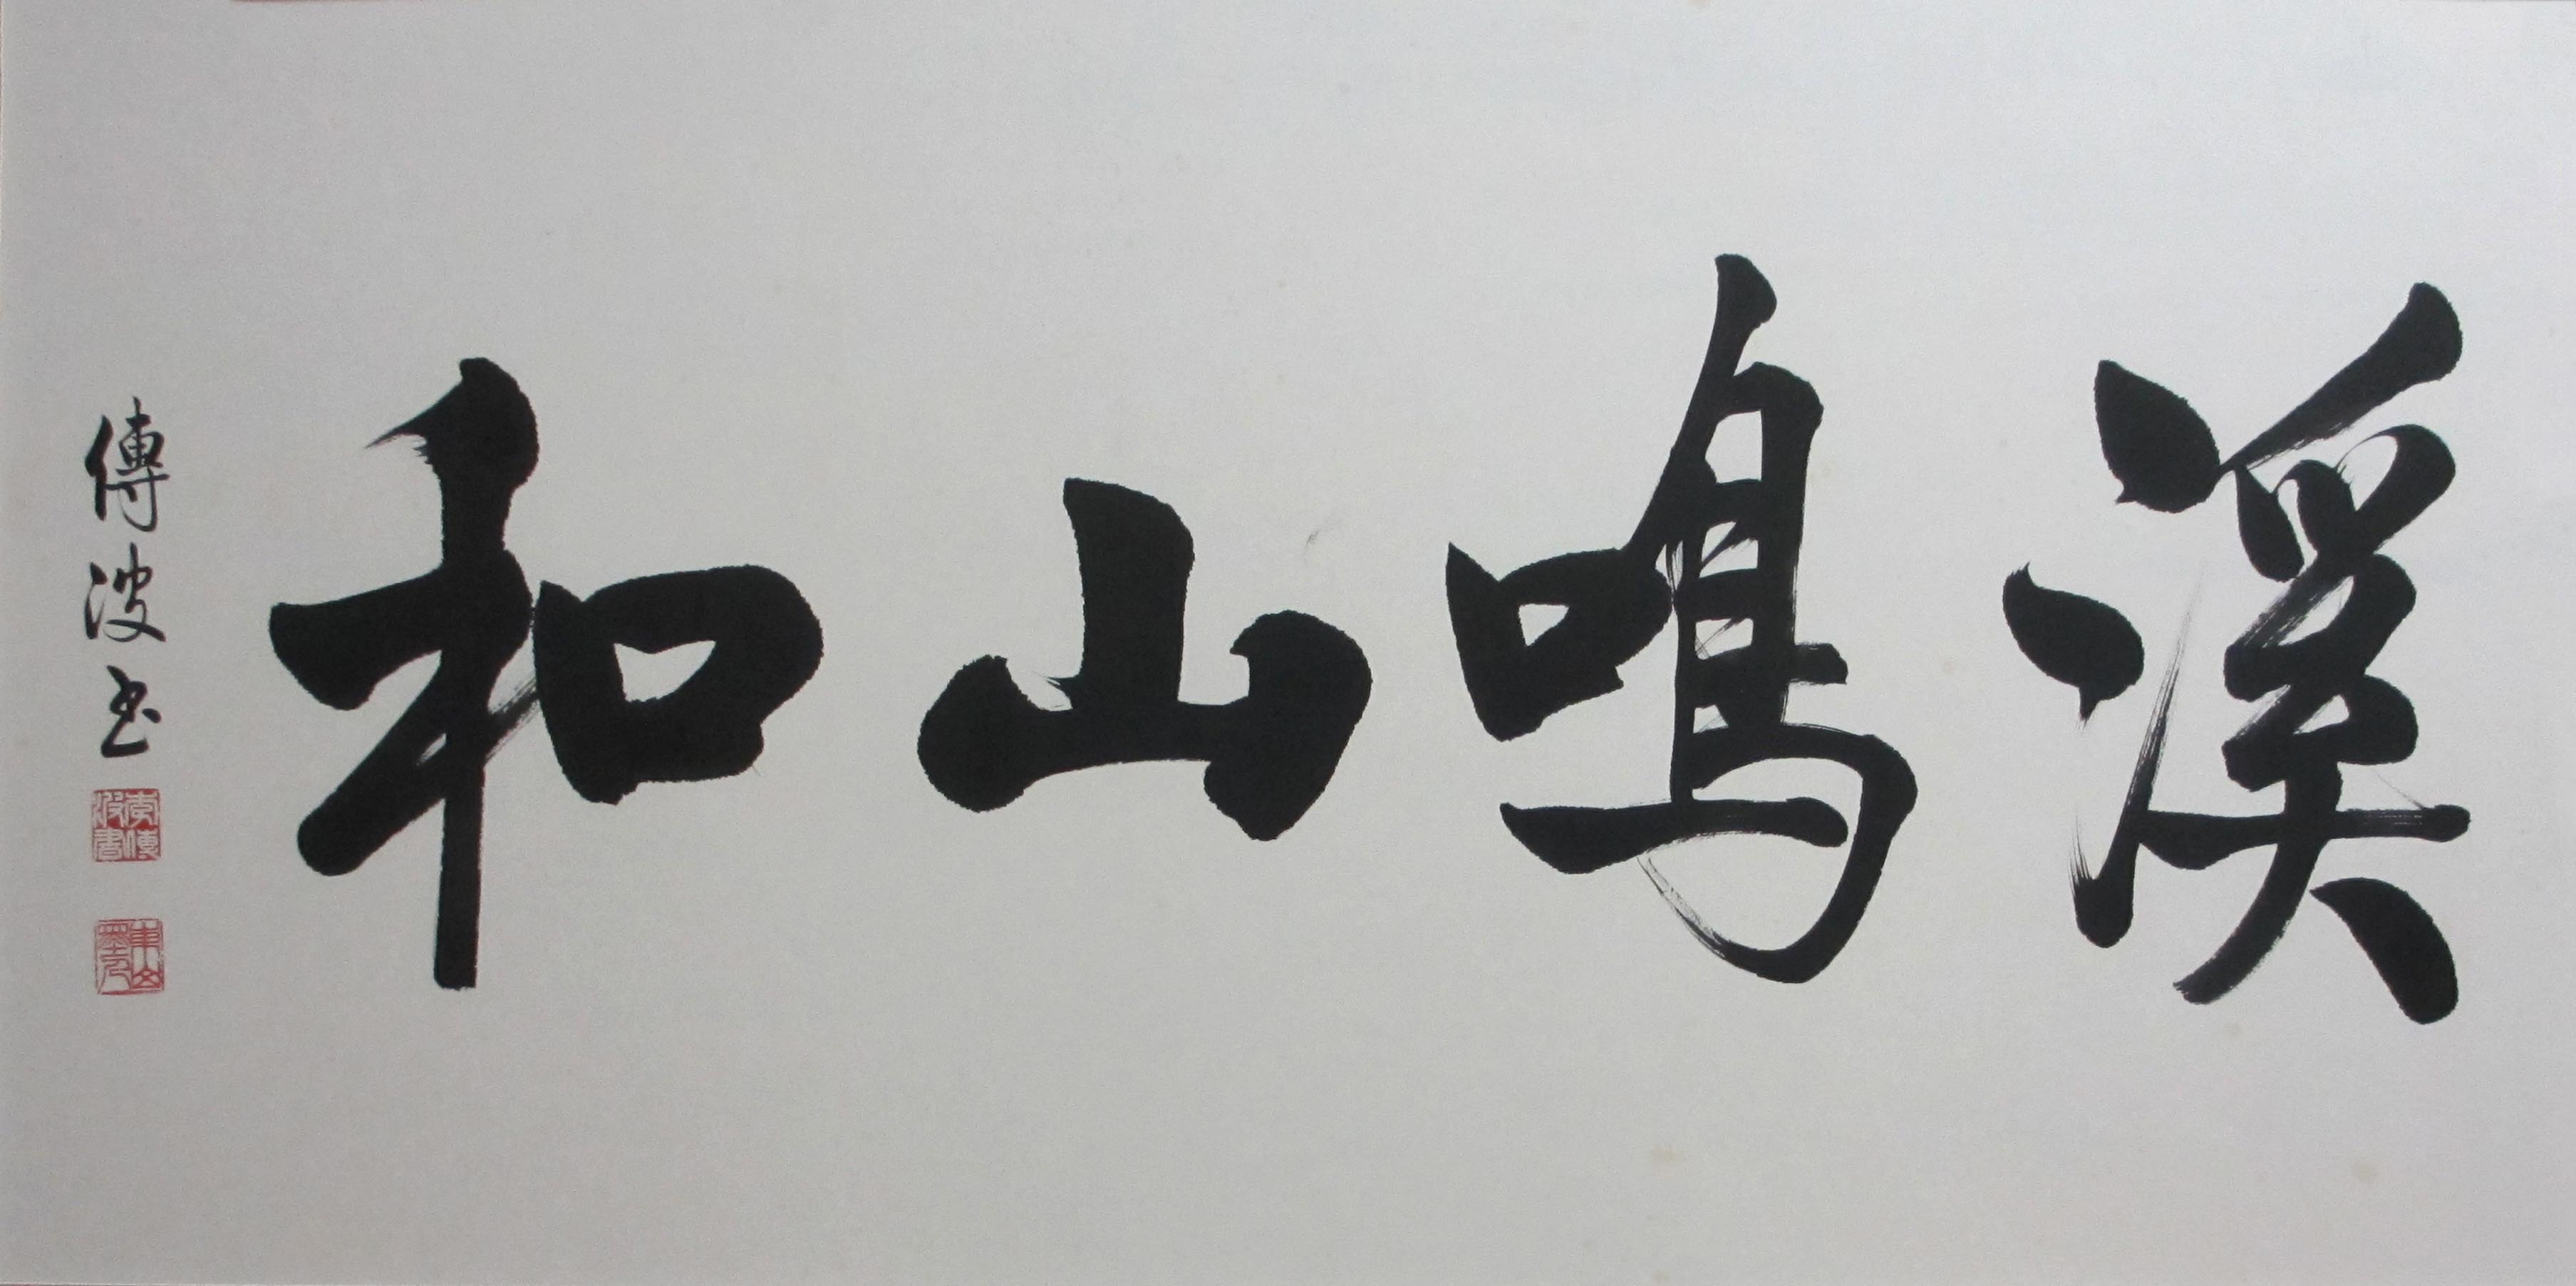 溪鳴山和
傳波書